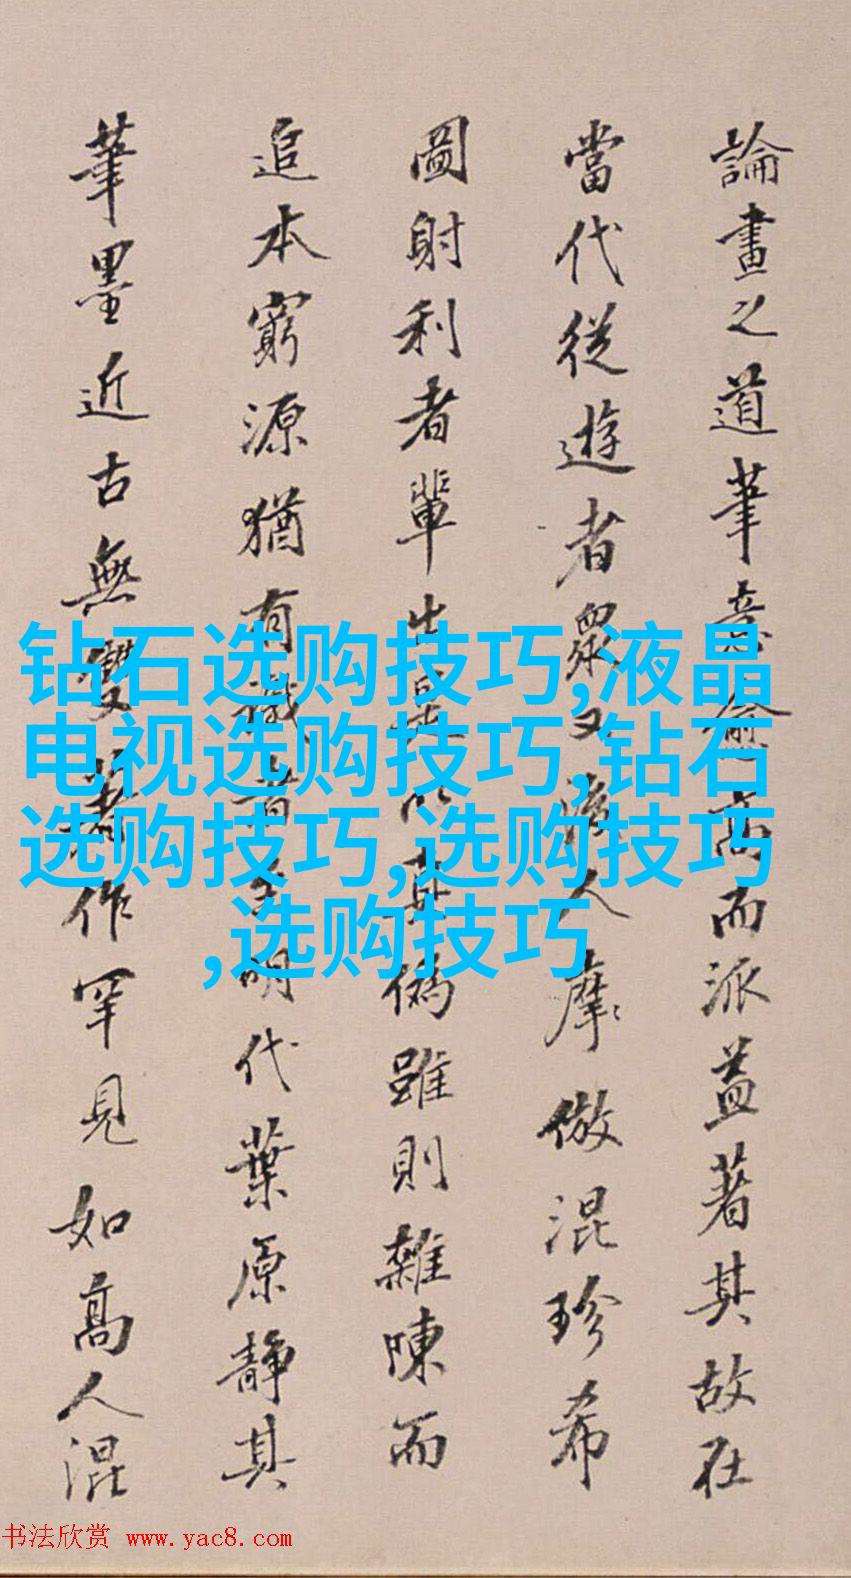 論畫之道筆意愈高而派益著其故在
當代從遊者眾又後人摩倣混珍希
圖射利者輩出是以真偽雖則雜陳而
追本窮源猶有識者明代葉原靜其
筆墨近古無雙著作罕見如高人混
钻石选购技巧,液晶
电视选购技巧,钻石
选购技巧,选购技巧
,选购技巧
书法欣赏 www.yac8.com